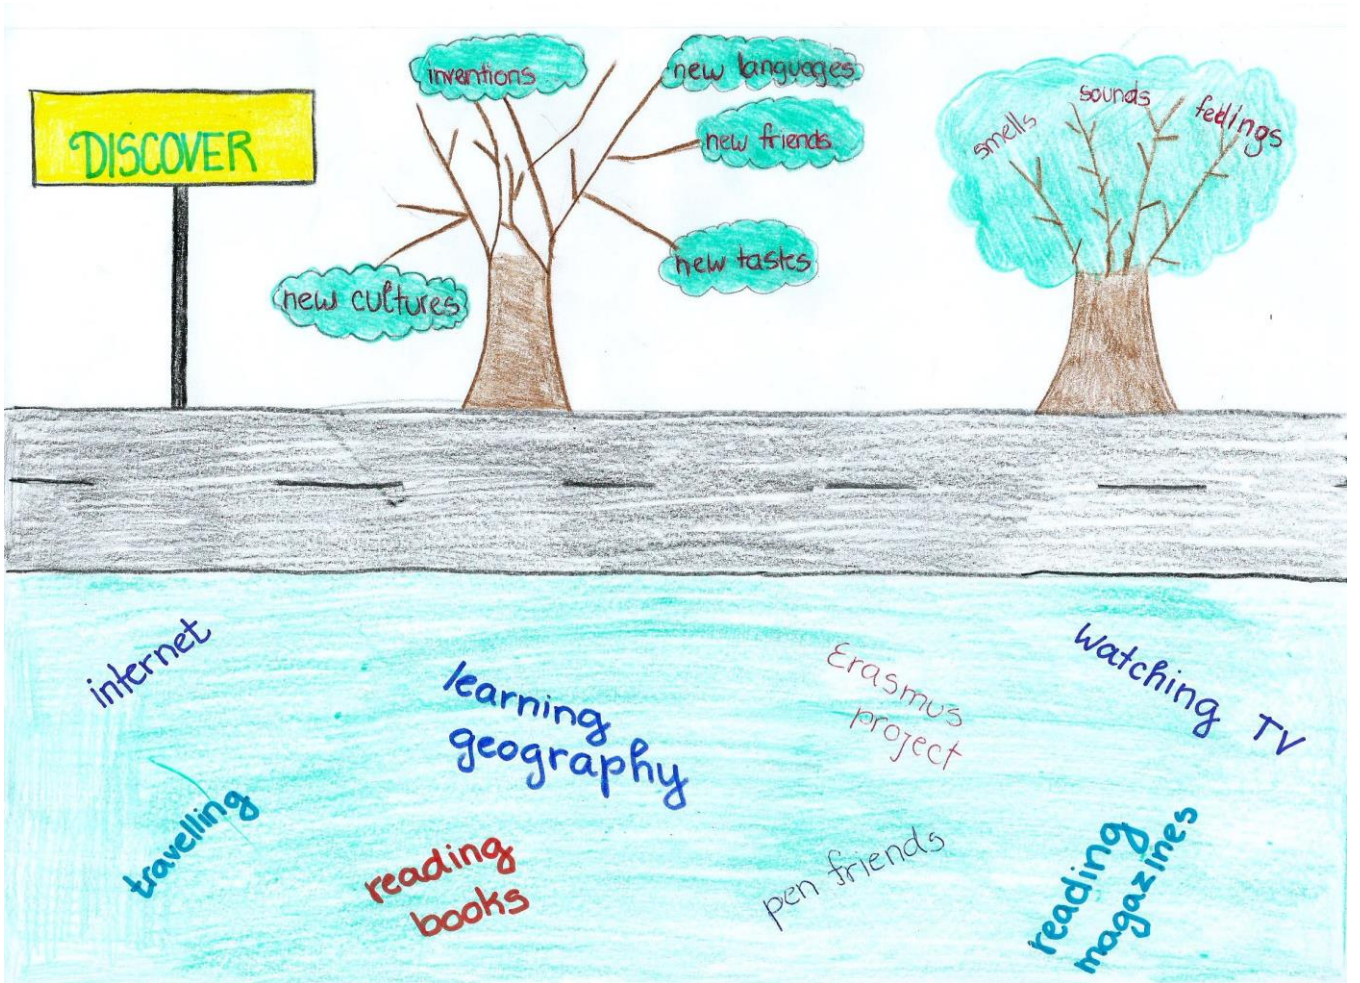 DISCOVER
inventions
new languages
new friends
new tastes
new cultures
smells
sounds
feelings
internet
learning
geography
Erasmus
project
watching TV
travelling
reading
books
pen friends
reading
magazines